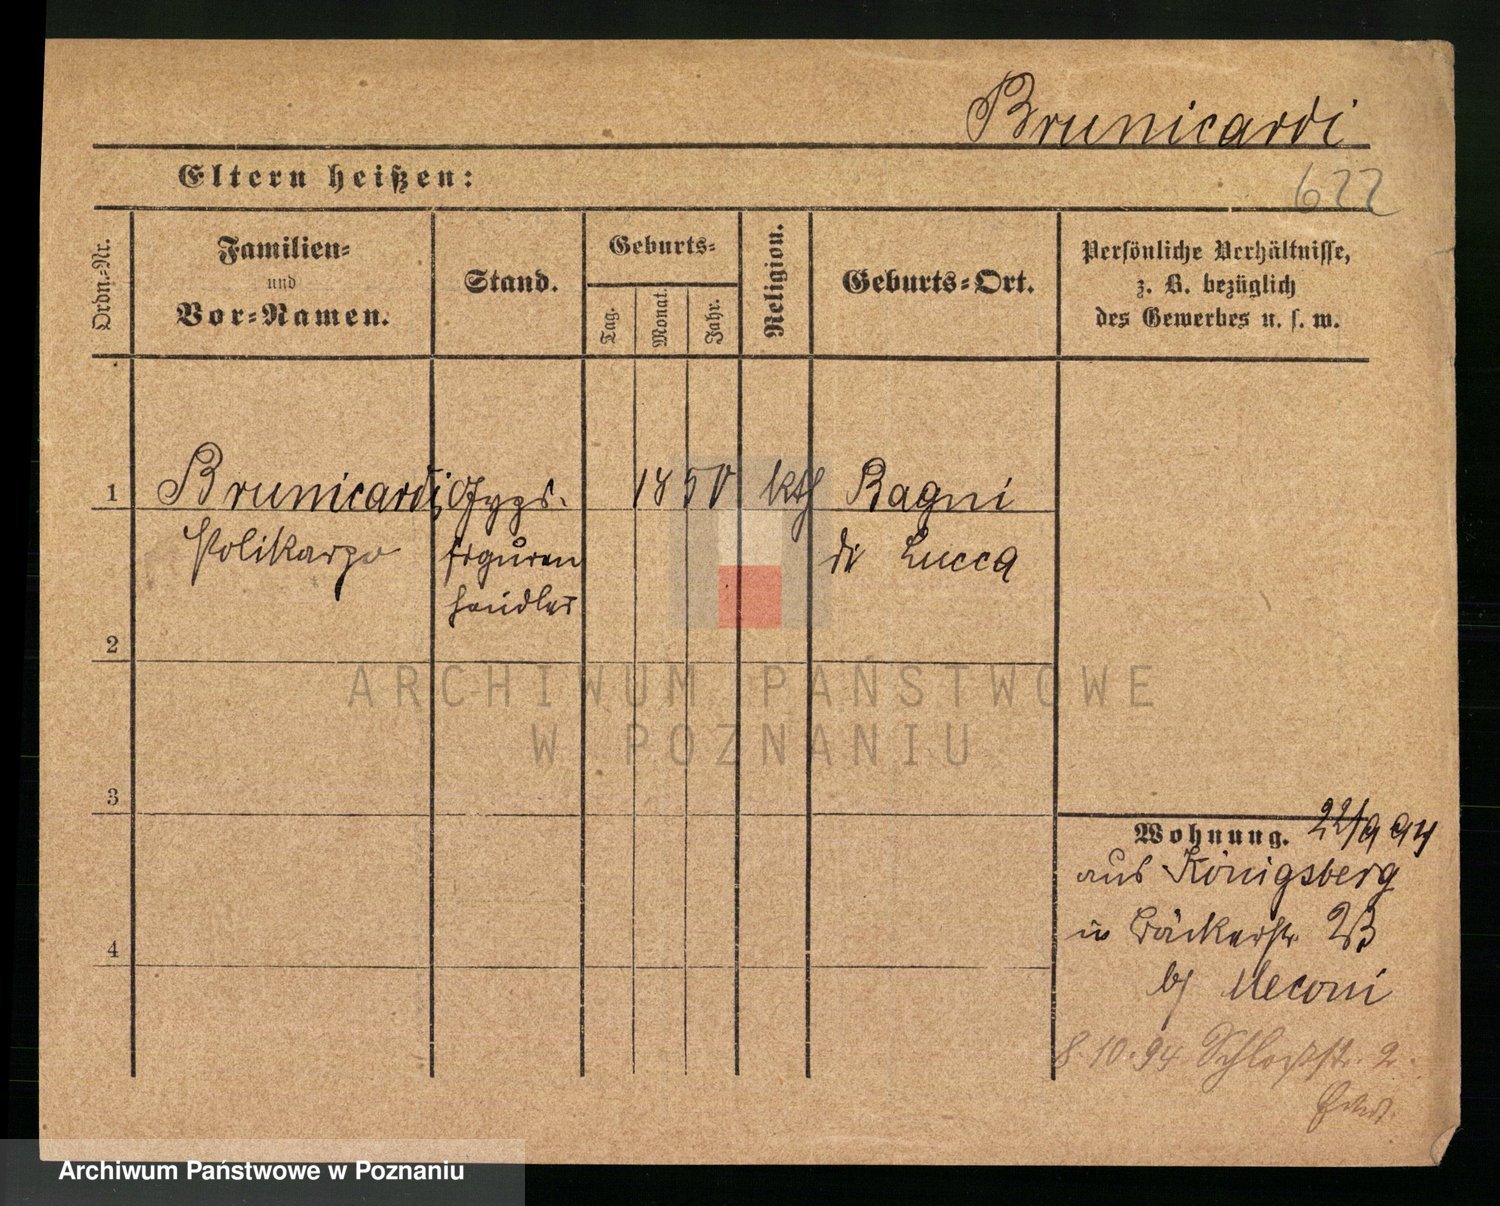 Brunicardi
Eltern heißen:
622
Ordn.-Nr.
Familien-
und
Vor-Namen.
Stand.
Geburts-
Tag.
Monat.
Jahr.
Religion.
Geburts-Ort.
Persönliche Verhältnisse,
z. B. bezüglich
des Gewerbes u. s. w.
1 Brunicardi, Gyps- 1850 kth Bagni
Polikarpo figuren di Lucca
händler
2
3
4
Wohnung. 22/9 94
aus Königsberg
in Bäckerstr 23
b/ Meconi
8.10.94 Schloßstr. 2.
ARCHIWUM PAŃSTWOWE
W POZNANIU
Archiwum Państwowe w Poznaniu